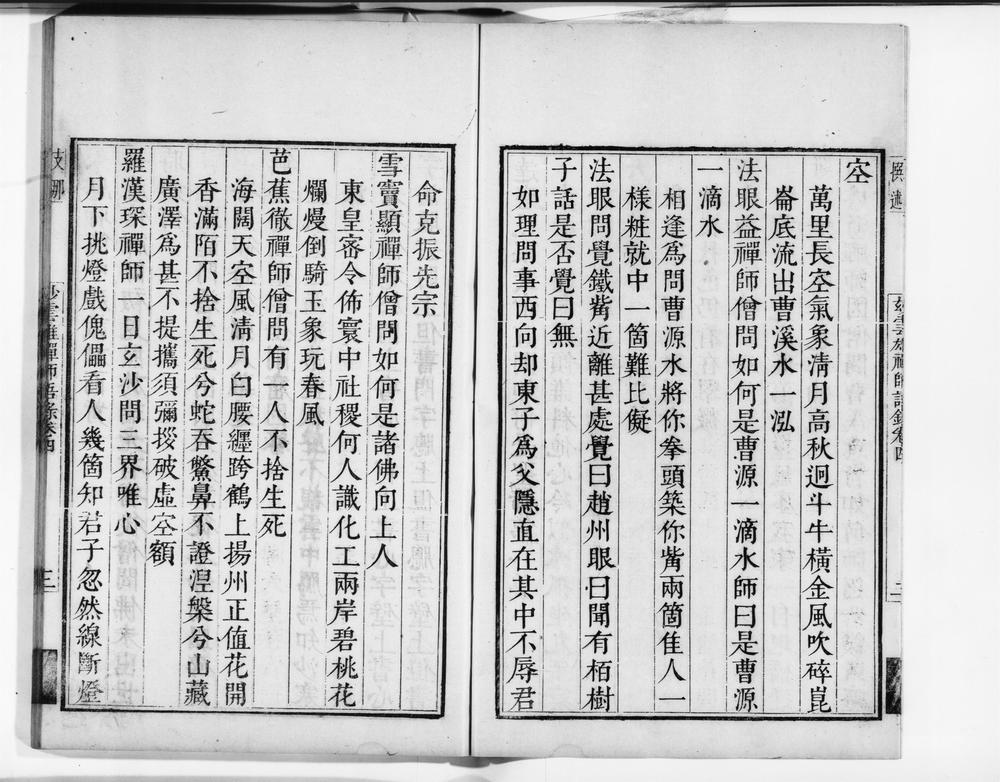 空
萬里長空氣象清月高秋迥斗牛橫金風吹碎崑
崙底流出曹溪水一泓
法眼益禪師僧問如何是曹源一滴水師曰是曹源
一滴水
相逢為問曹源水將你拳頭築你觜兩箇隹人一
樣粧就中一箇難比儗
法眼問覺鐵觜近離甚處覺曰趙州眼曰聞有栢樹
子話是否覺曰無
如理問事西向却東子為父隱直在其中不辱君
命克振先宗
雪竇顯禪師僧問如何是諸佛向上人
東皇密令佈寰中社稷何人識化工兩岸碧桃花
爛熳倒騎玉象玩春風
芭蕉徹禪師僧問有一人不捨生死
海闊天空風清月白腰纏跨鶴上揚州正值花開
香滿陌不捨生死兮蛇吞鱉鼻不證涅槃兮山藏
廣澤為甚不提攜須彌拶破虛空額
羅漢琛禪師一日玄沙問三界唯心
月下挑燈戲傀儡看人幾箇知君子忽然線斷燈
妙雲雄禪師語錄卷四
三
妙雲雄禪師語錄卷四
二